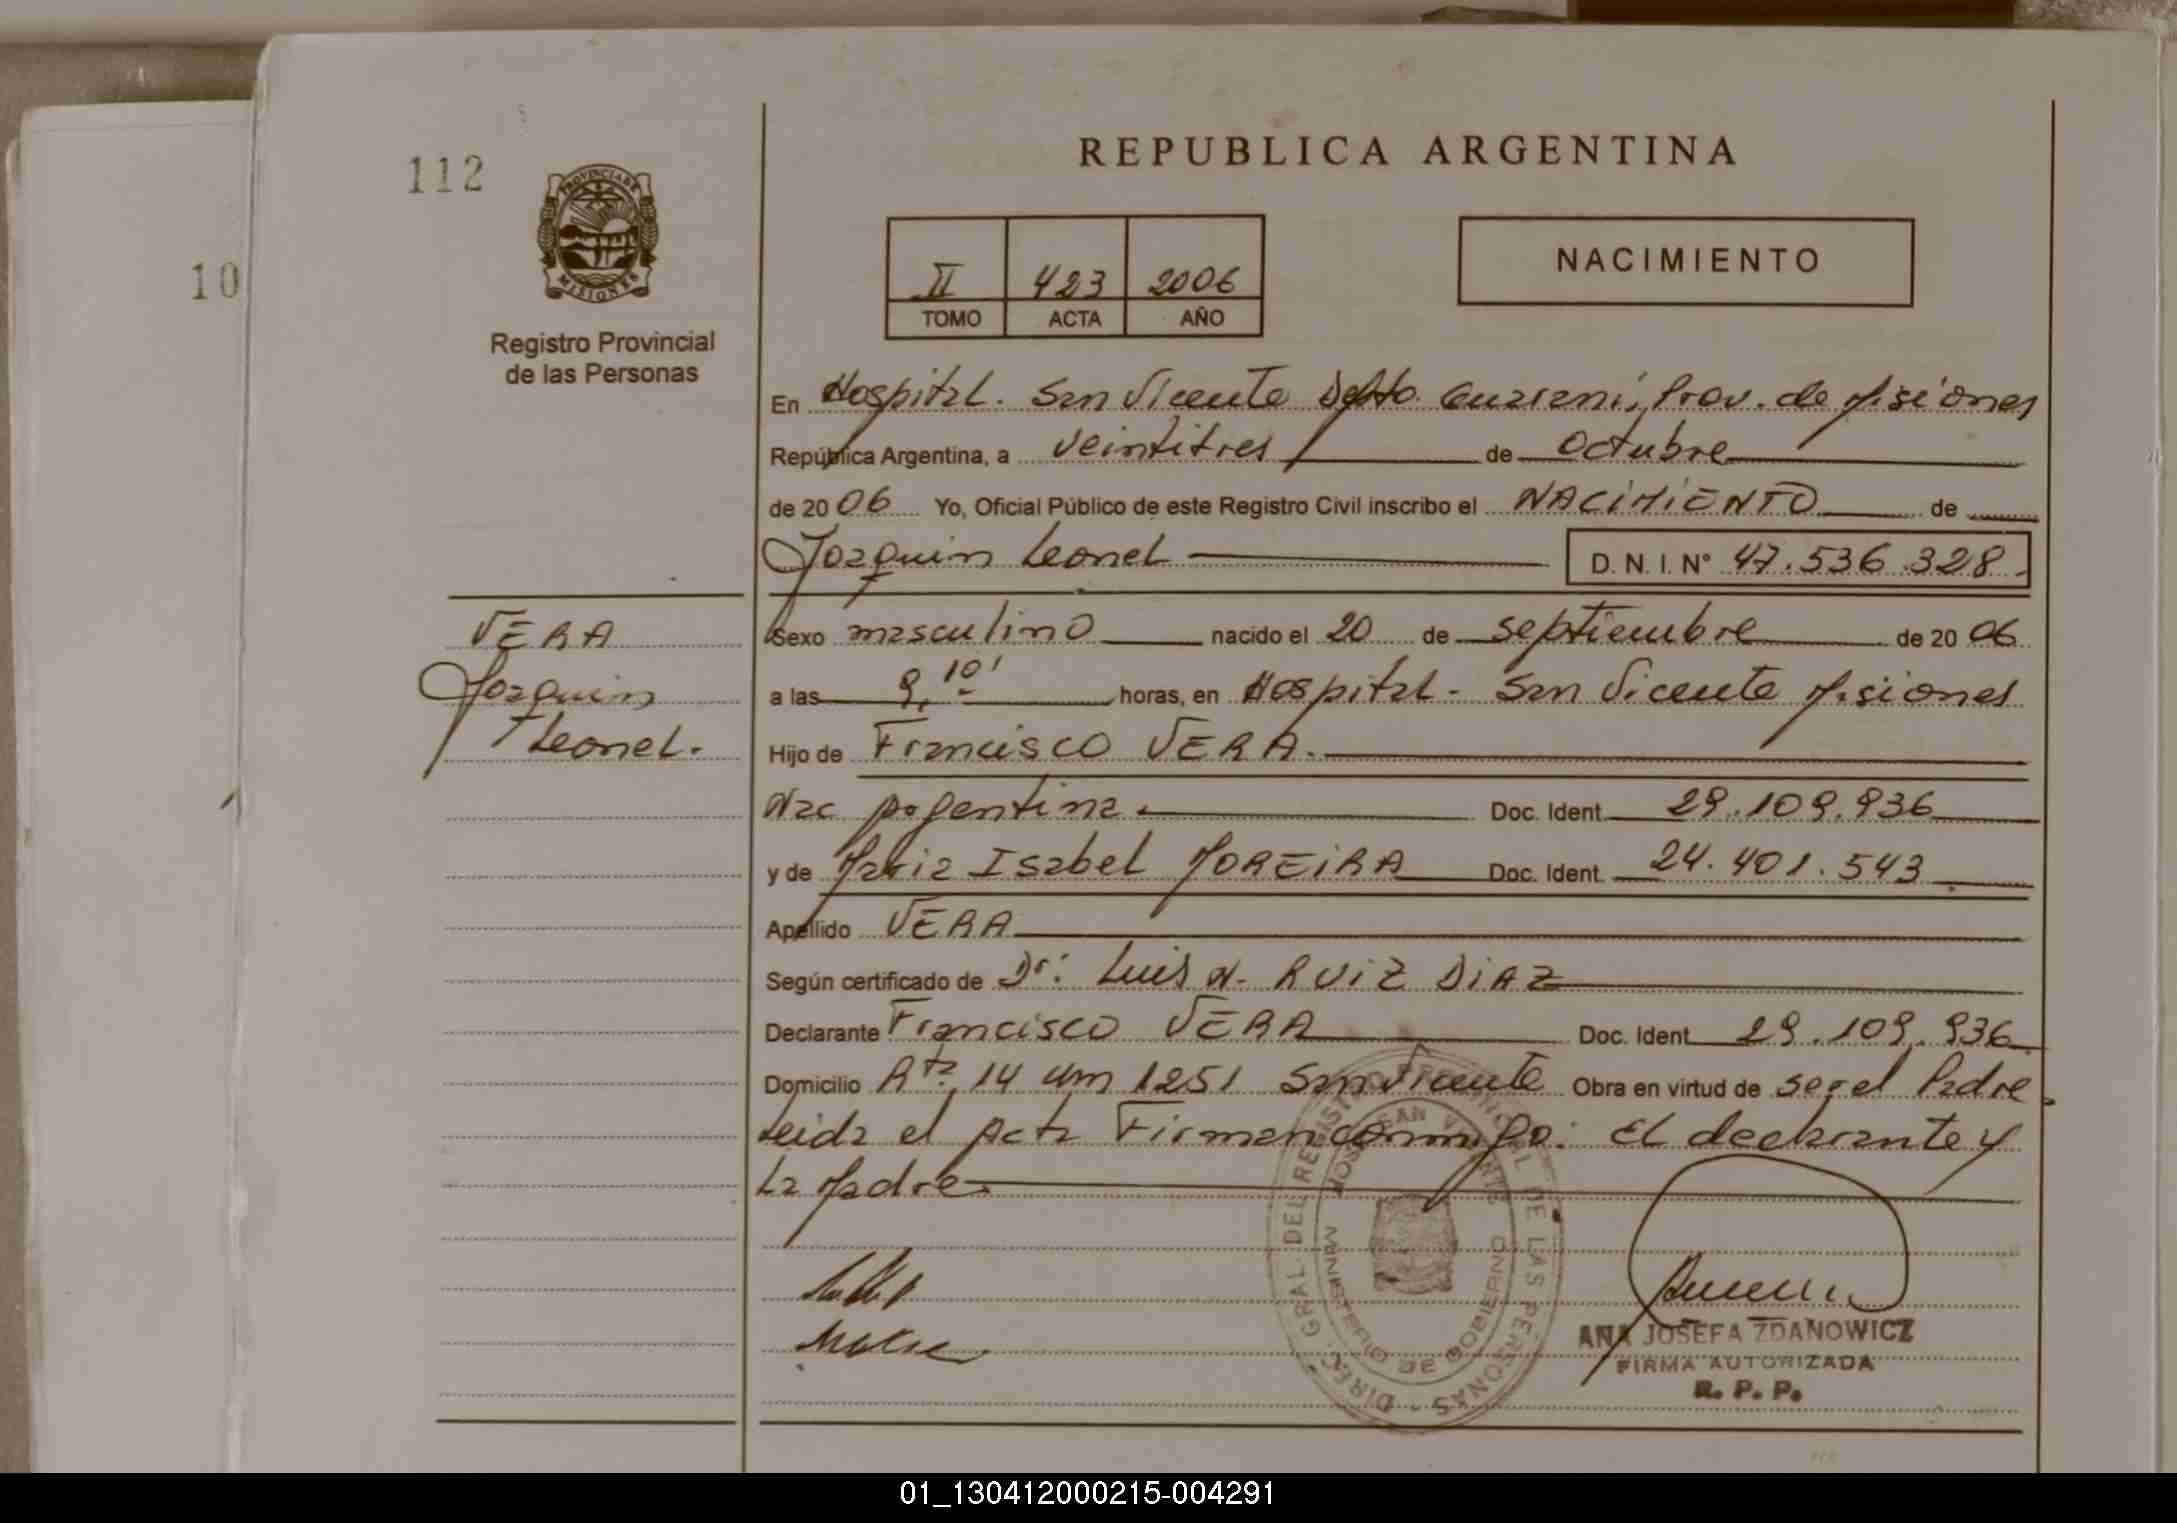 REPUBLICA ARGENTINA
112
10
PROVINCIA DE
MISIONES
Registro Provincial
de las Personas
II 423 2006
TOMO ACTA AÑO
NACIMIENTO
En Hospital. San Vicente Dpto. Guarani, Prov. de Misiones
República Argentina, a veintitres de Octubre
de 2006 Yo, Oficial Público de este Registro Civil inscribo el NACIMIENTO de
Joaquin Leonel D. N. I. N° 47.536.328.
VERA
Joaquin
Leonel.
Sexo masculino nacido el 20 de septiembre de 2006
a las 9,10' horas, en Hospital - San Vicente Misiones
Hijo de Francisco VERA.
Nac Argentina. Doc. Ident. 29.109.936
y de Maria Isabel MOREIRA Doc. Ident. 24.401.543
Apellido VERA
Según certificado de Dr: Luis N. RUIZ DIAZ
Declarante Francisco VERA Doc. Ident. 29.109.936
Domicilio Rta. 14 Km 1251 San Vicente Obra en virtud de ser el Padre
Leida el Acta Firman conmigo: El declarante y
La Madre.
DIREC. GRAL. DEL REGISTRO PROVINCIAL DE LAS PERSONAS -
HOSP. SAN VICENTE
MINISTERIO DE GOBIERNO
ANA JOSEFA ZDANOWICZ
FIRMA AUTORIZADA
R. P. P.
01_130412000215-004291